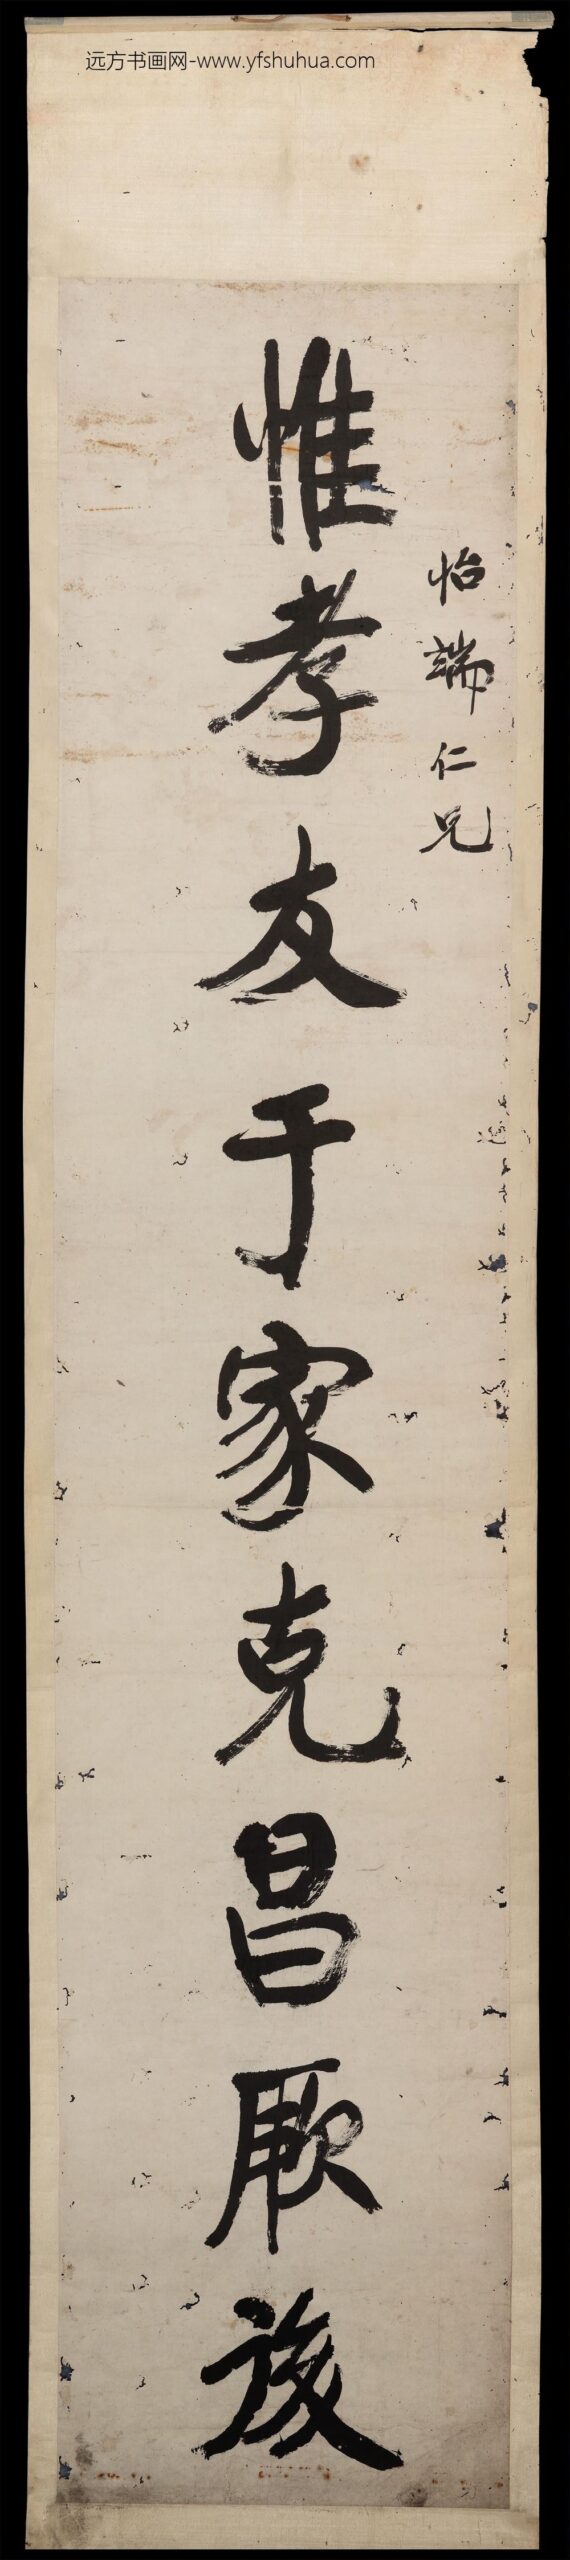 远方书画网-www.yfshuhua.com
怡端仁兄
惟孝友于家克昌厥族